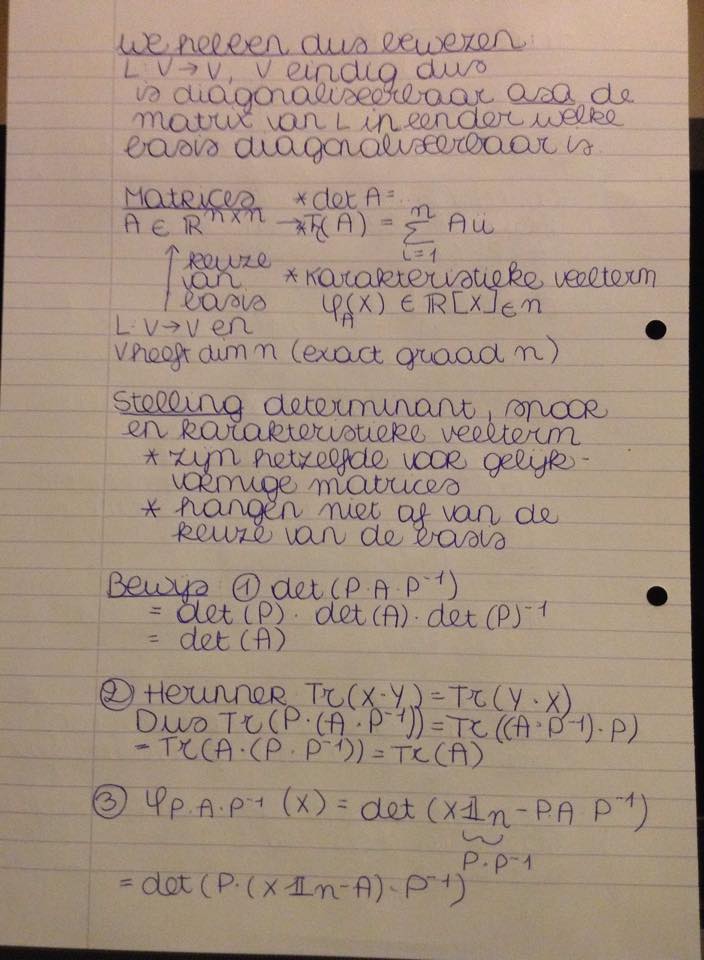 We hebben dus bewezen:
L: V → V, V eindig dus
is diagonaliseerbaar asa de
matrix van L in eender welke
basis diagonaliseerbaar is
Matrices * det A = ..
A ∈ ℝ^{n×n} → * Tr(A) = ∑_{i=1}^{n} A_{ii}
↑ keuze
van * karakteristieke veelterm
basis φ_A(X) ∈ ℝ[X]_{∈ n}
L: V → V en
V heeft dim n (exact graad n)
Stelling determinant, spoor
en karakteristieke veelterm
* zijn hetzelfde voor gelijk-
vormige matrices
* hangen niet af van de
keuze van de basis
Bewijs ① det(P·A·P⁻¹)
= det(P)· det(A)· det(P)⁻¹
= det(A)
② Herinner Tr(X·Y) = Tr(Y·X)
Dus Tr(P·(A·P⁻¹)) = Tr((A·P⁻¹)·P)
= Tr(A·(P·P⁻¹)) = Tr(A)
③ φ_{P·A·P⁻¹}(X) = det(X𝟙n - P·A P⁻¹)
P·P⁻¹
= det(P·(X𝟙n-A)·P⁻¹)